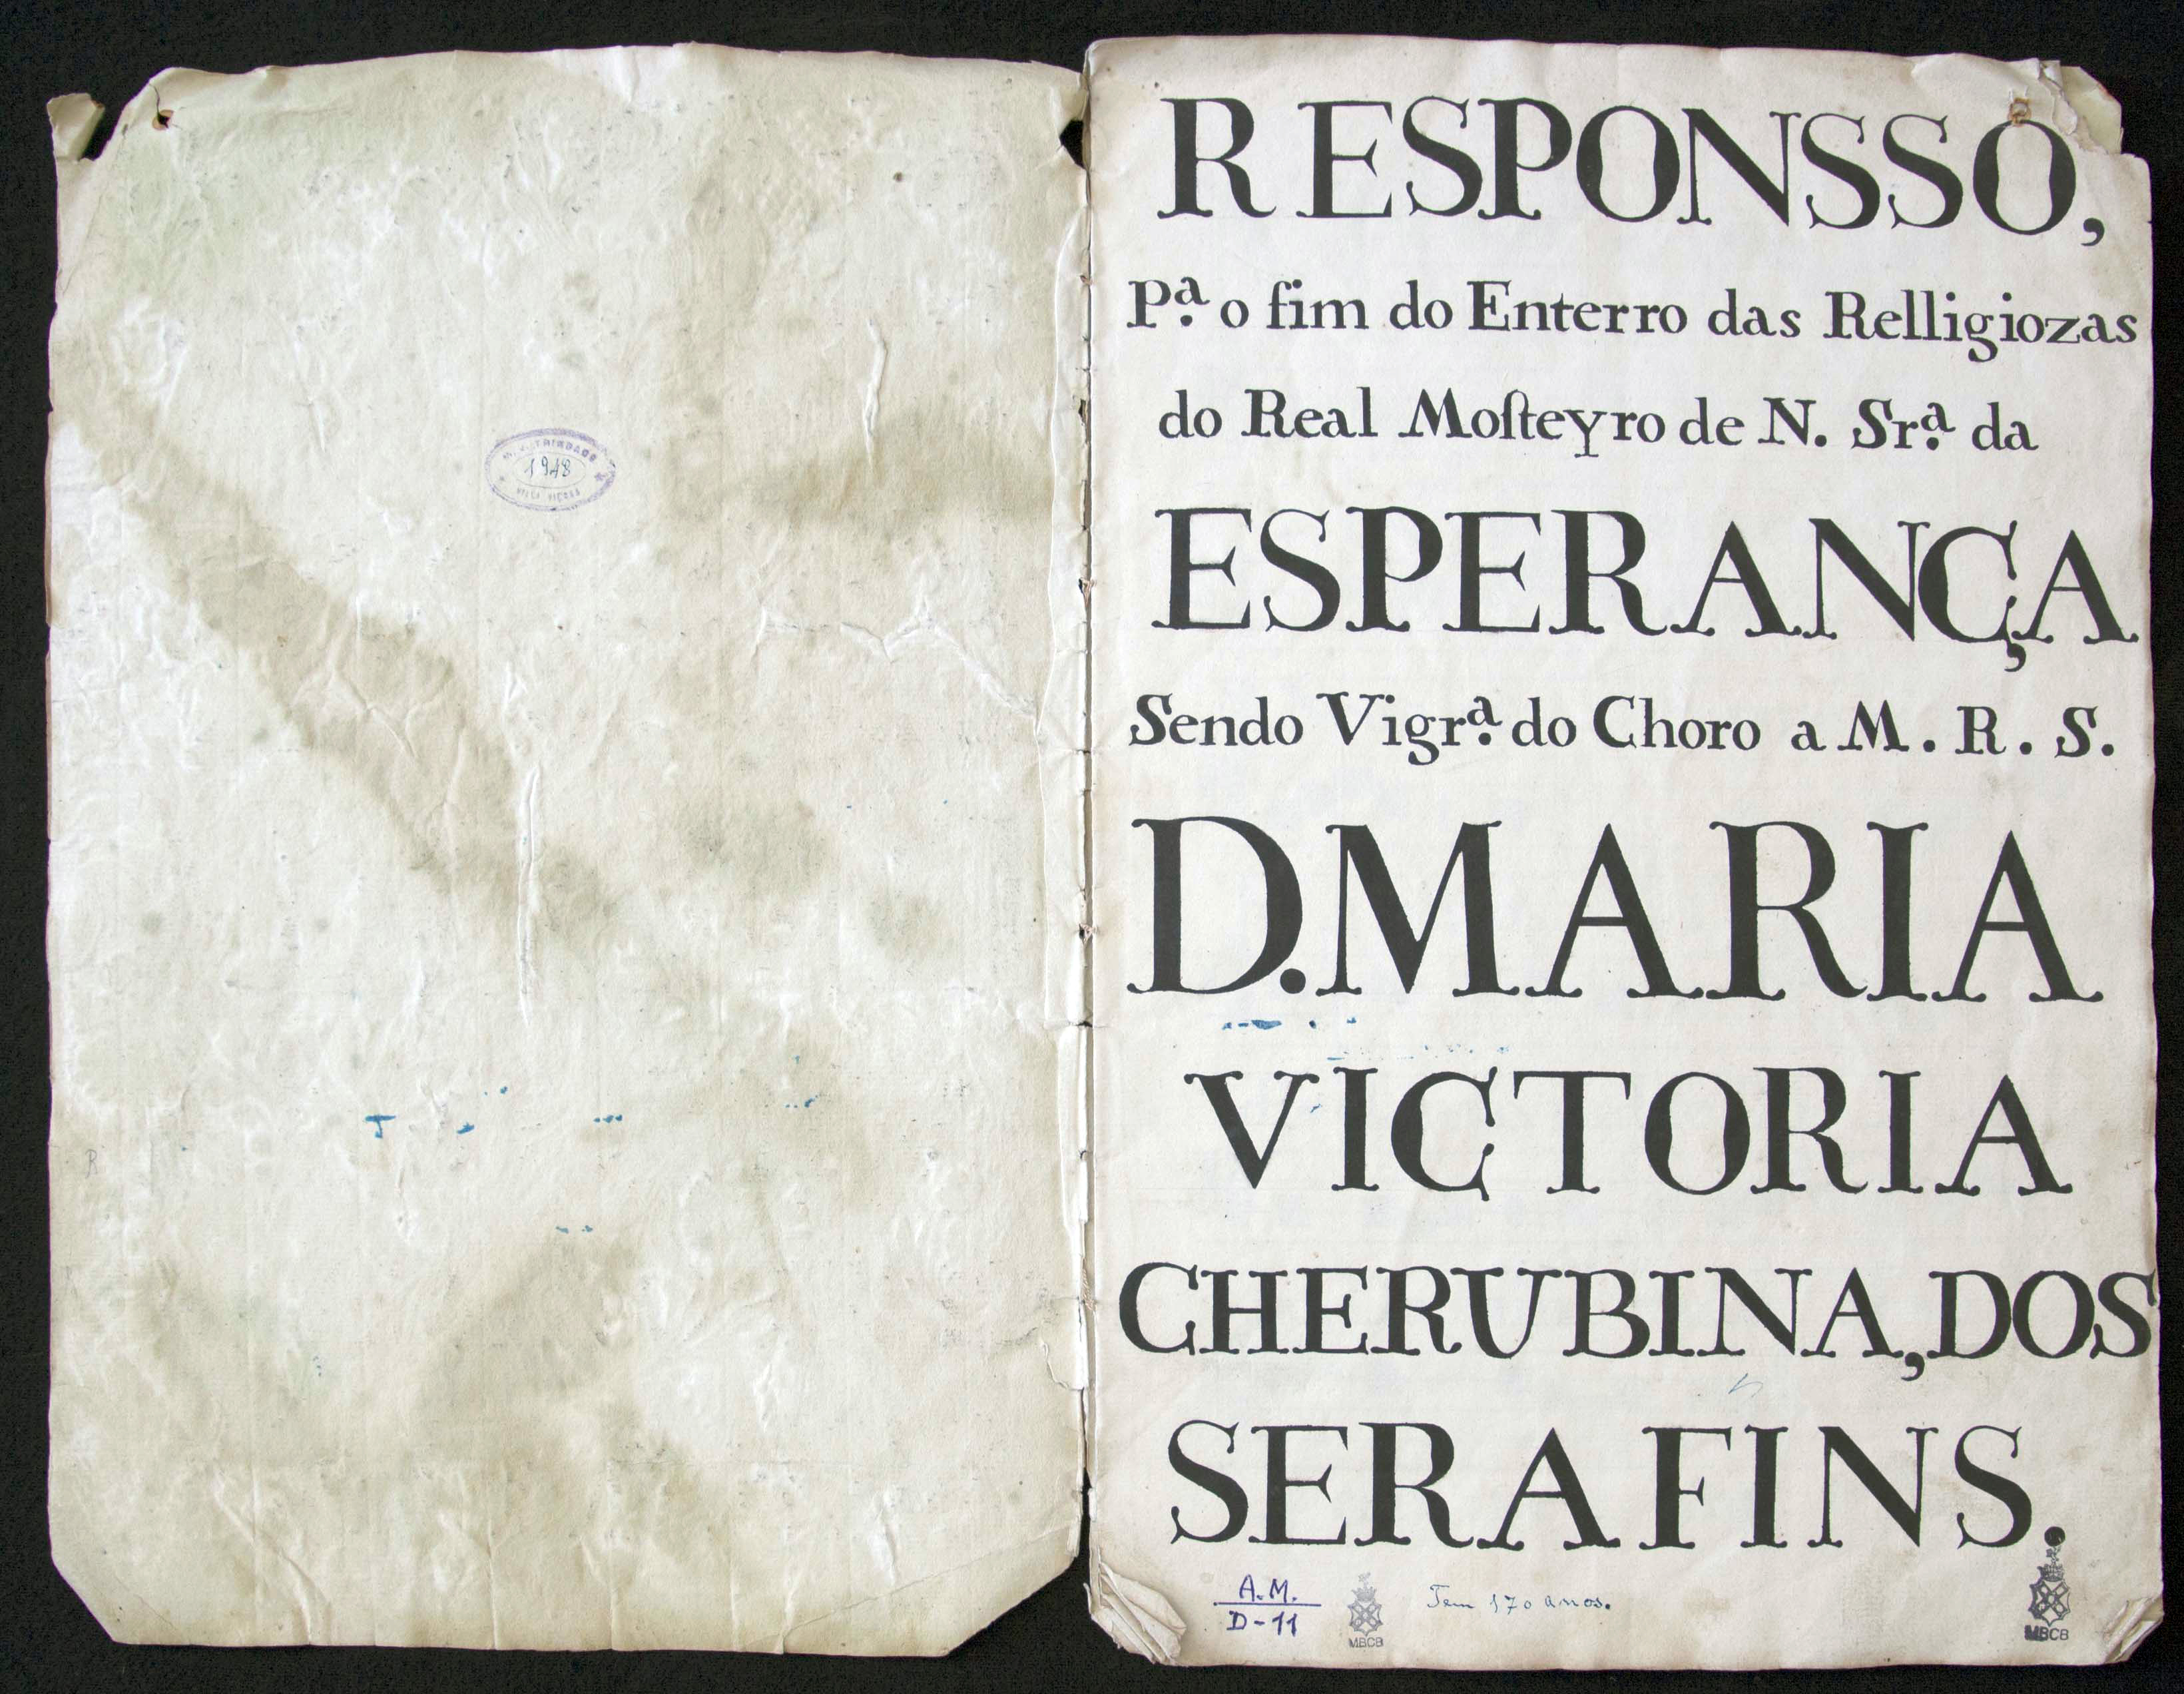 1948
RESPONSSO,
Pª. o fim do Enterro das Relligiozas
do Real Moſteyro de N. Srª. da
ESPERANÇA
Sendo Vigrª. do Choro a M. R. S.
D. MARIA
VICTORIA
CHERUBINA, DOS
SERAFINS.
A.M.
D-11
MBCB
Tem 170 anos.
MBCB